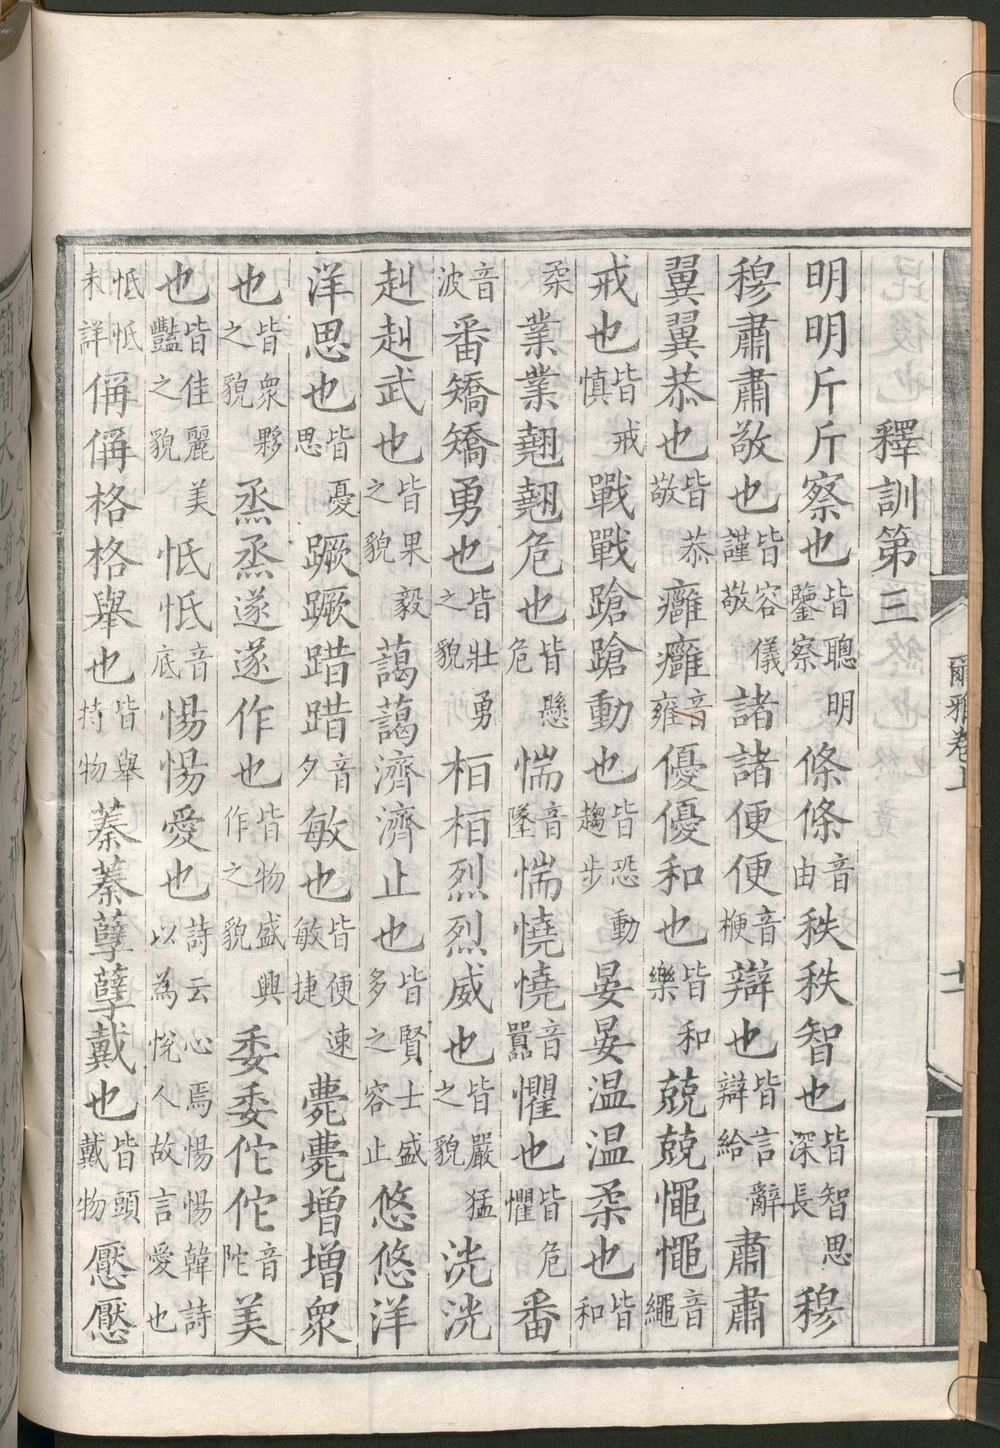 釋訓第三
明明斤斤察也皆聰明鑒察條條音由秩秩智也皆智思深長穆
穆肅肅敬也皆容儀謹敬諸諸便便音梗辯也皆言辭辯給肅肅
翼翼恭也皆恭敬廱廱音雍優優和也皆和樂兢兢憴憴音繩
戒也皆戒慎戰戰蹌蹌動也皆恐動趨步晏晏温温柔也皆和
柔業業翹翹危也皆懸危惴音墜惴憢憢音嚻懼也皆危懼番
音波番矯矯勇也皆壯勇之貌桓桓烈烈威也皆嚴猛之貌洸洸
赳赳武也皆果毅之貌藹藹濟濟止也皆賢士盛多之容止悠悠洋
洋思也皆憂思蹶蹶踖踖音夕敏也皆便速敏捷薨薨增增眾
也皆衆夥之貌烝烝遂遂作也皆物盛興作之貌委委佗佗音陀美
也皆佳麗美豔之貌怟怟音底惕惕愛也詩云心焉惕惕韓詩以為悅人故言愛也
怟怟未詳偁偁格格舉也皆舉持物蓁蓁孽孽戴也皆頭戴物懕懕
爾雅卷上
十一